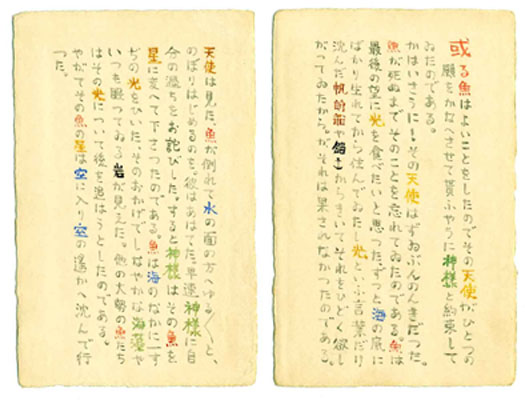 或る魚はよいことをしたのでその天使がひとつの
願をかなへさせて貰ふやうに神様と約束して
ゐたのである。
かはいさうに!その天使はずゐぶんのんきだつた。
魚が死ぬまでそのことを忘れてゐたのである。魚は
最後の望に光を食べたいと思つた、ずつと海の底に
ばかり生れてから住んでゐたし光といふ言葉だけ
沈んだ帆前船や錨からきいてそれをひどく欲し
がつてゐたから。がそれは果されなかつたのである。
天使は見た、魚が倒れて水の面の方へゆる〱と、
のぼりはじめるのを。彼はあはてた。早速神様に自
分の過ちをお詫びした。すると神様はその魚を
星に変へて下さつたのである。魚は海のなかに一す
ぢの光をひいた、そのおかげでしなやかな海藻や
いつも眠つてゐる岩が見えた。他の大勢の魚たち
はその光について後を追はうとしたのである。
やがてその魚の星は空に入り空の遥かへ沈んで行
つた。